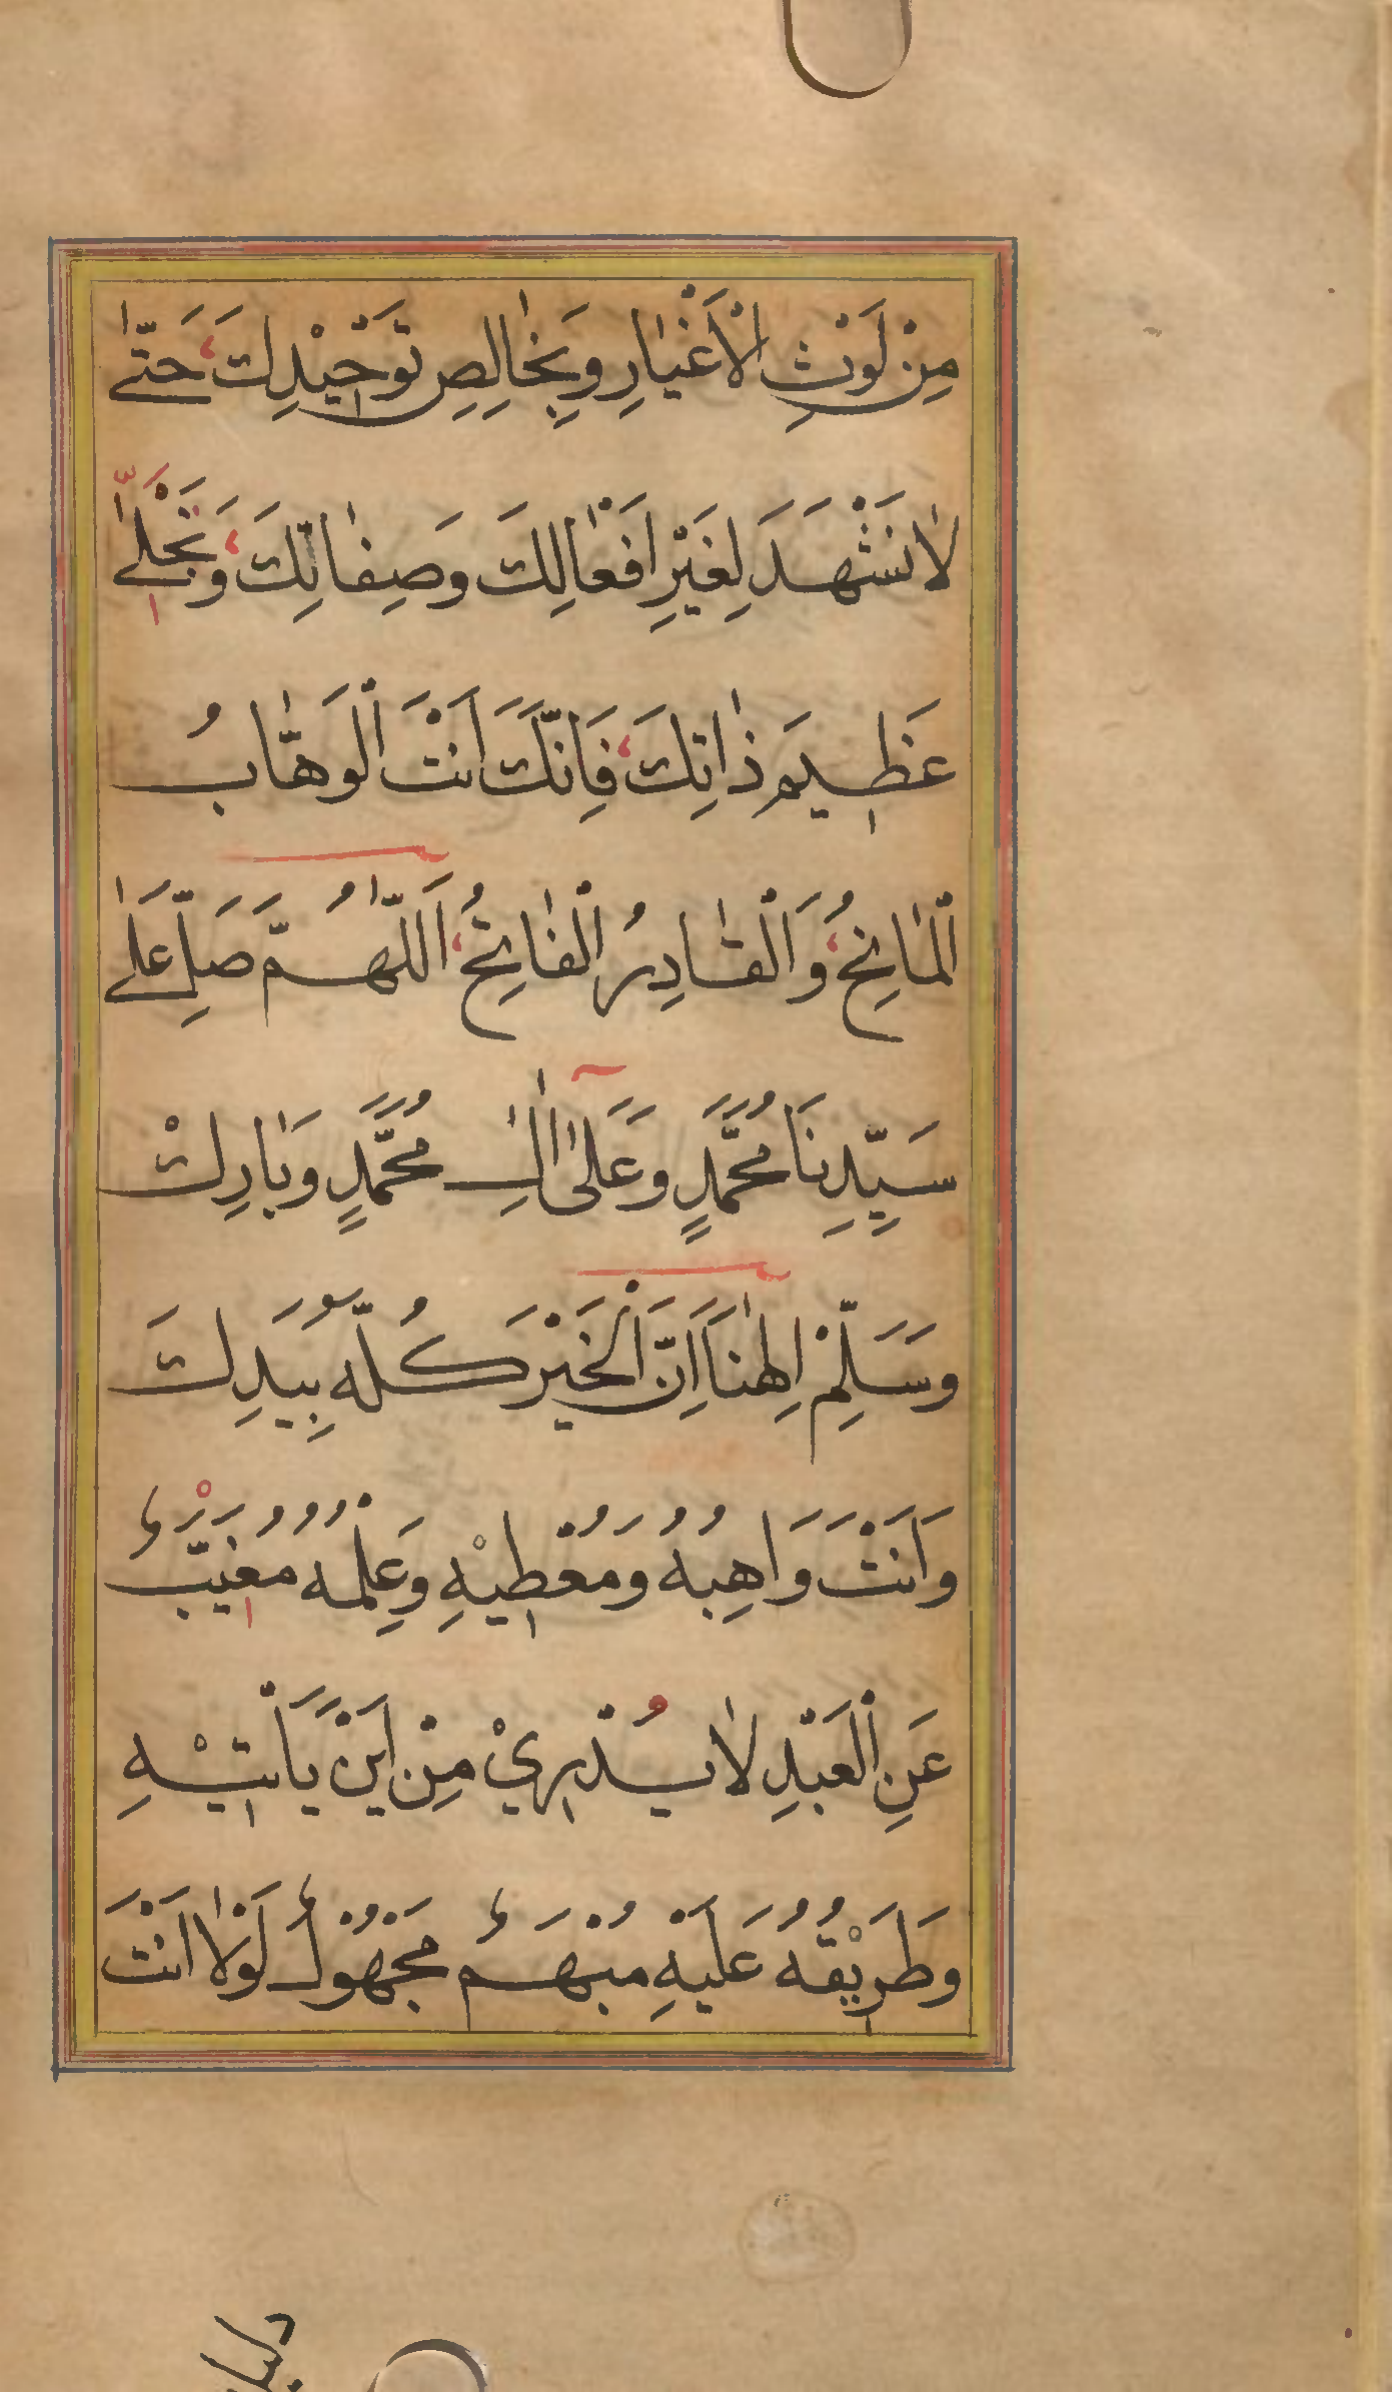 مِنْ لَوْثِ الْاَغْيَارِ وَبِخَالِصِ تَوْحِيْدِكَ حَتّٰى
لَا نَشْهَدَ لِغَيْرِ اَفْعَالِكَ وَصِفَاتِكَ وَتَجَلِّى
عَظِيمِ ذَاتِكَ فَاِنَّكَ اَنْتَ الْوَهَّابُ
الْمَانِحُ وَالْقَادِرُ الْفَاتِحُ اَللّٰهُمَّ صَلِّ عَلٰى
سَيِّدِنَا مُحَمَّدٍ وَعَلٰى اٰلِ مُحَمَّدٍ وَبَارِكْ
وَسَلِّمْ اِلٰهَنَا اِنَّ الْخَيْرَ كُلَّهُ بِيَدِكَ
وَاَنْتَ وَاهِبُهُ وَمُعْطِيْهِ وَعِلْمُهُ مُغَيَّبٌ
عَنِ الْعَبْدِ لَا يُدْرِيْ مِنْ اَيْنَ يَاْتِيْهِ
وَطَرِيْقُهُ عَلَيْهِ مُبْهَمٌ مَجْهُوْلٌ لَوْلَا اَنْتَ